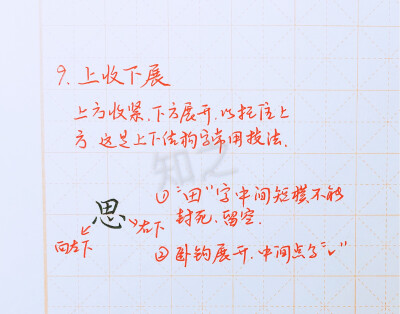 9.上收下展
上方收紧,下方展开,以托住上
方 这是上下结构字常用技法.
知之
①"田"字中间短横不能
封死,留空.
思
向左下
右下
②卧钩展开,中间点与"ㄑ"